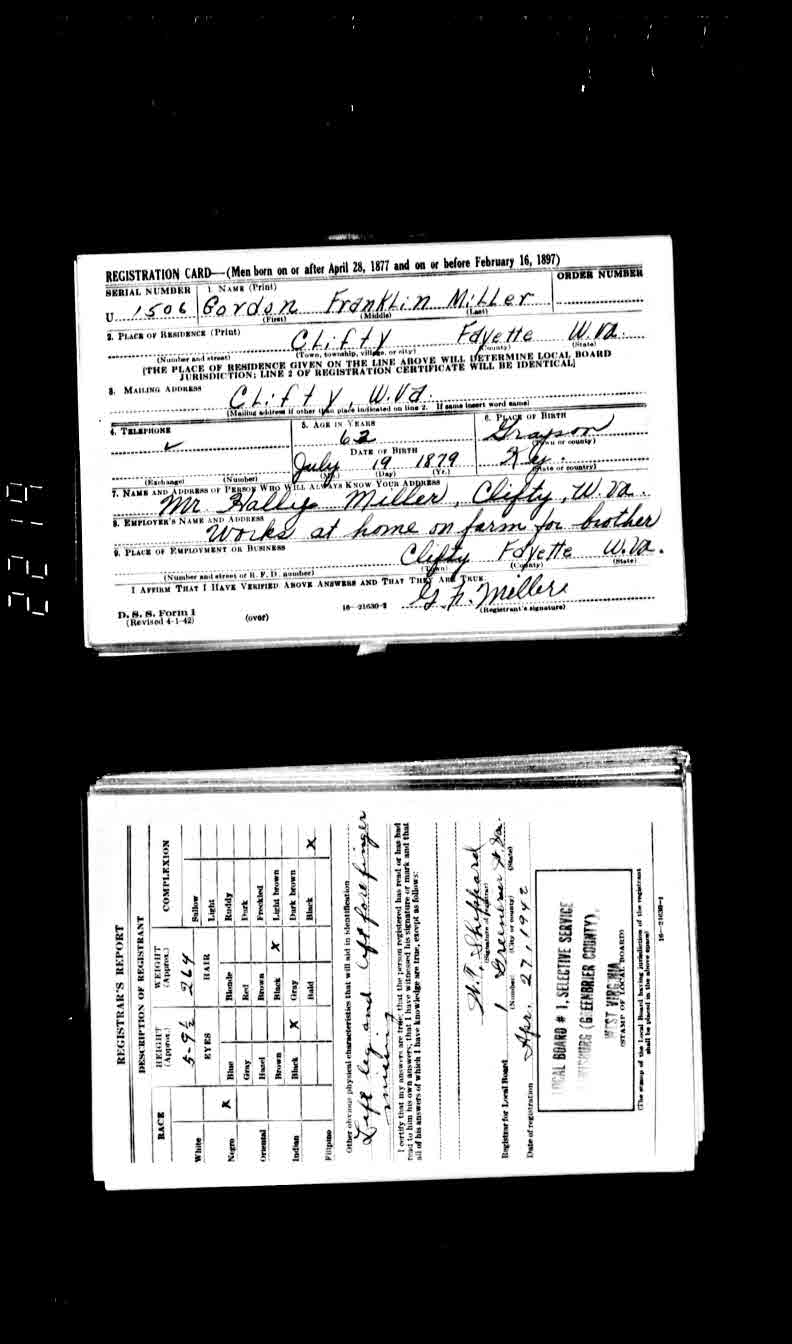 REGISTRATION CARD—(Men born on or after April 28, 1877 and on or before February 16, 1897)
SERIAL NUMBER 1. NAME (Print) ORDER NUMBER
U 1506 Gordon Franklin Miller
(First) (Middle) (Last)
2. PLACE OF RESIDENCE (Print)
Clifty Fayette W.Va.
(Number and street) (Town, township, village, or city) (County) (State)
[THE PLACE OF RESIDENCE GIVEN ON THE LINE ABOVE WILL DETERMINE LOCAL BOARD
JURISDICTION; LINE 2 OF REGISTRATION CERTIFICATE WILL BE IDENTICAL]
3. MAILING ADDRESS
Clifty, W.Va.
(Mailing address if other than place indicated on line 2. If same insert word same)
4. TELEPHONE 5. AGE IN YEARS 6. PLACE OF BIRTH
62 Grayson
(Town or county)
DATE OF BIRTH
July 19 1879 Ky.
(Exchange) (Number) (Mo.) (Day) (Yr.) (State or country)
7. NAME AND ADDRESS OF PERSON WHO WILL ALWAYS KNOW YOUR ADDRESS
Mr. Hallie Miller, Clifty, W.Va.
8. EMPLOYER'S NAME AND ADDRESS
Works at home on farm for brother
9. PLACE OF EMPLOYMENT OR BUSINESS
Clifty Fayette W.Va.
(Number and street or R. F. D. number) (Town) (County) (State)
I AFFIRM THAT I HAVE VERIFIED ABOVE ANSWERS AND THAT THEY ARE TRUE.
G. F. Miller
D. S. S. Form 1 16—21630-2 (Registrant's signature)
(Revised 4-1-42) (over)
22 19
REGISTRAR'S REPORT
DESCRIPTION OF REGISTRANT
RACE HEIGHT (Approx.) WEIGHT (Approx.) COMPLEXION
5-9½ 264
White EYES HAIR Sallow
Light
Negro X Blue Blonde Ruddy
Gray Red Dark
Oriental Hazel Brown Freckled
Brown Black X Light brown
Indian Black X Gray Dark brown
Bald Black X
Filipino
Other obvious physical characteristics that will aid in identification
Left leg and left forefinger
missing
I certify that my answers are true; that the person registered has read or has had
read to him his own answers; that I have witnessed his signature or mark and that
all of his answers of which I have knowledge are true, except as follows:
W.T. Sheppard
(Signature of registrar)
Registrar for Local Board 1 Greenbrier W.Va.
(Number) (City or county) (State)
Date of registration Apr. 27, 1942
LOCAL BOARD # 1, SELECTIVE SERVICE
(GREENBRIER COUNTY),
WEST VIRGINIA
(STAMP OF LOCAL BOARD)
(The stamp of the Local Board having jurisdiction of the registrant
shall be placed in the above space)
16—21630-1